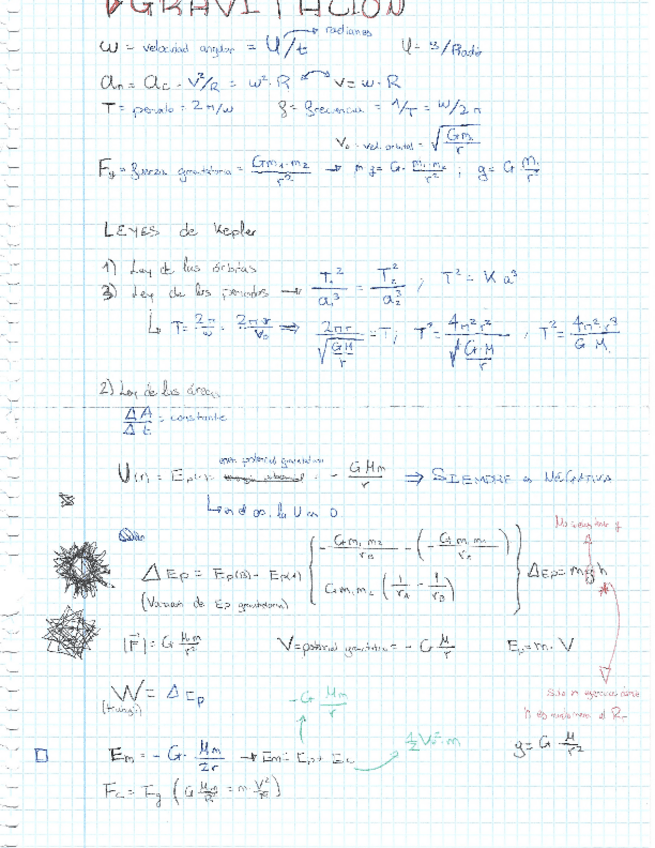 GRAVITACIÓN
ω = velocidad angular = φ/t → radianes φ = s/Radio
an = ac = v²/R = ω²·R v = ω·R
T = periodo = 2π/ω f = frecuencia = 1/T = ω/2π
Vo = vel. orbital = √(Gm/r)
Fg = fuerza gravitatoria = Gm1·m2/r² → mg = G·m1·m2/r² ; g = G m/r²
LEYES de Kepler
1) Ley de las órbitas
3) Ley de los periodos → T1²/a1³ = T2²/a2³ ; T² = K a³
↳ T = 2π/ω = 2πr/Vo ⇒ 2πr/√(GM/r) = T ; T² = 4π²r²/√(G·M/r) ; T² = 4π²r³/GM
2) Ley de las áreas
ΔA/Δt = constante
U(r) = Ep(r) = potencial gravitatoria = - GMm/r ⇒ SIEMPRE es NEGATIVA
↳ en el ∞, la U es 0
ΔEp = Ep(B) - Ep(A) { -Gm1m2/rB - (-Gm1m2/rA) Gm1m2 (1/rA - 1/rB) } ΔEp = mgh
(Variación de Ep gravitatoria)
|F| = G Mm/r² V = potencial gravitatorio = - G M/r Ep = m·V
W = ΔEp
-G Mm/r
Em = -G· Mm/2r → Em = Ep + Ec ½V²·m
g = G·M/r²
Fc = Fg (G Mm/R² = m V²/R)